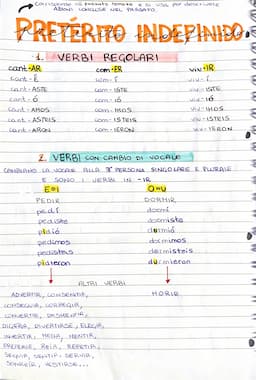 CORRISPONDE AL PASSATO REMOTO E SI USA PER DESCRIVERE
AZIONI CONCLUSE NEL PASSATO.
PRETÉRITO INDEFINIDO
1. VERBI REGOLARI
cant-AR com-ER viv-IR
cant-É com-í viv-í
cant-ASTE com-ISTE viv-ISTE
cant-ó com-ió viv-ió
cant-AMOS com-IMOS viv-IMOS
cant-ASTEIS com-ISTEIS viv-ISTEIS
cant-ARON com-IERON viv-IERON
2. VERBI CON CAMBIO DI VOCALE
CAMBIANO LA VOCALE ALLA 3ª PERSONA SINGOLARE E PLURALE
E SONO I VERBI IN -IR
E=I O=U
PEDIR DORMIR
pedí dormí
pediste dormiste
pidió durmió
pedimos dormimos
pedisteis dormisteis
pidieron durmieron
ALTRI VERBI
ADVERTIR, CONSENTIR, MORIR
CONSEGUIR, CORREGIR,
CONVERTIR, DESMENTIR,
DIGERIR, DIVERTIRSE, ELEGIR,
INVERTIR, MEDIR, MENTIR,
PREFERIR, REIR, REPETIR,
SEGUIR, SENTIR, SERVIR,
SONREIR, VESTIRSE...